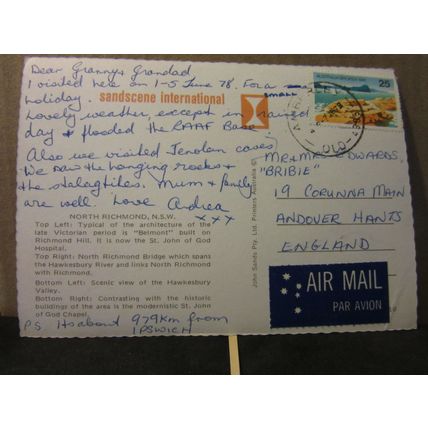 Dear Grannys Grandad
I visited here on 1-5 June 78. For a
SMALL
holiday.
sandscene international
Lovely weather, except in rained
day & flooded the RAAF Base.
Also we visited Jenolan cases
We saw the hanging rocks &
the stalagtiles. Mum & family
are well. Love Andrea
xxx
NORTH RICHMOND, N.S.W.
Top Left: Typical of the architecture of the
late Victorian period is "Belmont" built on
Richmond Hill. It is now the St. John of God
Hospital.
Top Right: North Richmond Bridge which spans
the Hawkesbury River and links North Richmond
with Richmond.
Bottom Left: Scenic view of the Hawkesbury
Valley.
Bottom Right: Contrasting with the historic
buildings of the area is the modernistic St. John
of God Chapel.
PS Its about 979km from
IPSWICH
John Sands Pty. Ltd. Printers Australia ©
25
QLD
MR & MRS EDWARDS,
"BRIBIE"
19 CORUNNA MAIN
ANDOVER HANTS
ENGLAND
AIR MAIL
PAR AVION